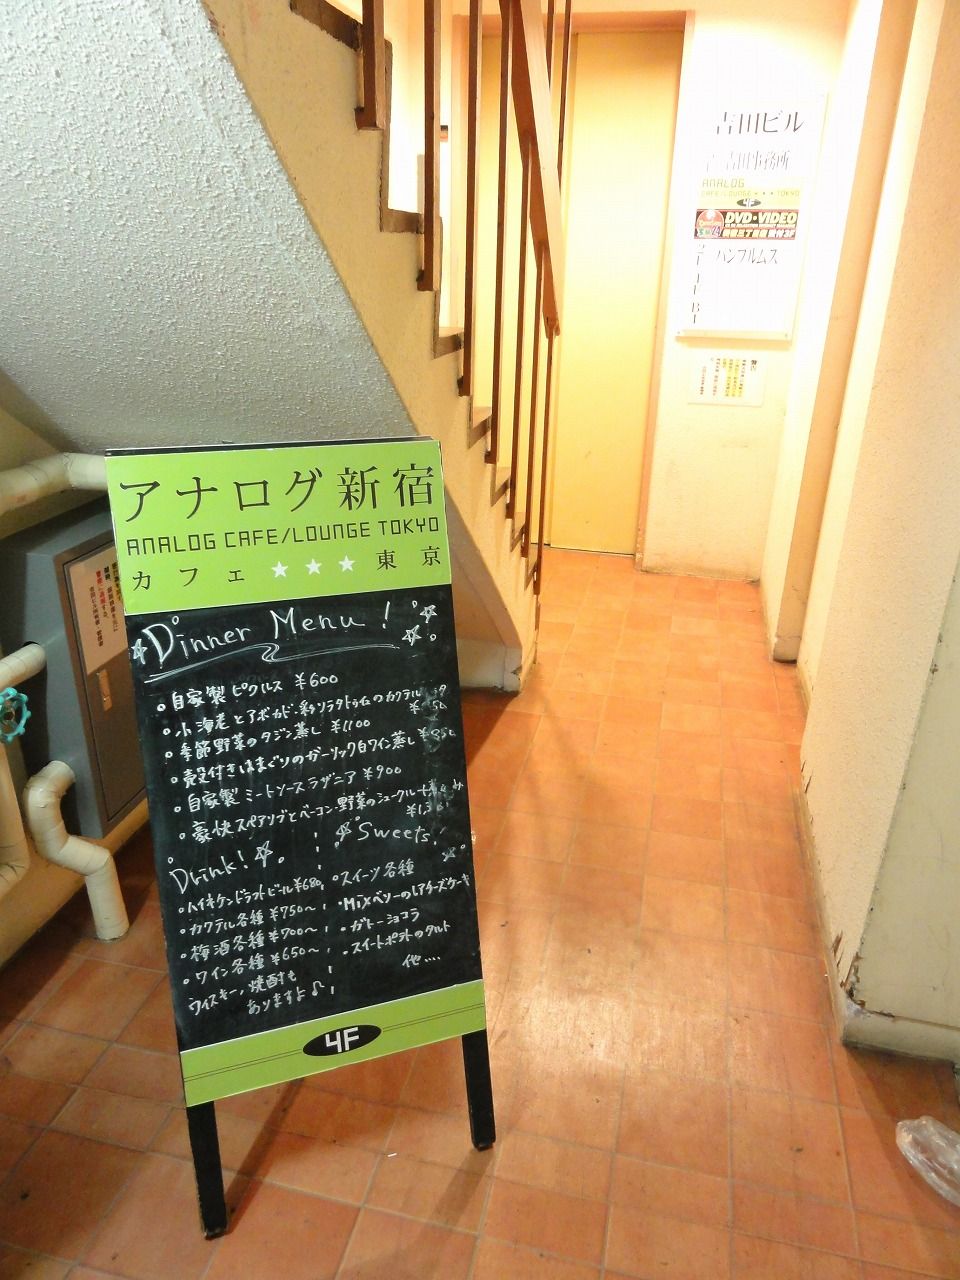 アナログ新宿
ANALOG CAFE/LOUNGE TOKYO
カフェ ★★★ 東京
Dinner Menu !
自家製ピクルス ¥600
小海老とアボカド・彩りラタトゥイユのカクテル
季節野菜のタジン蒸し ¥1,100
殻付きはまぐりのガーリック白ワイン蒸し
自家製ミートソースラザニア ¥900
豪快スペアリブとベーコン・野菜のシュークルート
Drink!
ハイネケンドラフトビール ¥680
カクテル各種 ¥750〜
梅酒各種 ¥700〜
ワイン各種 ¥650〜
ウィスキー、焼酎も
ありますよ♪
Sweets!
スイーツ各種
Mixベリーのレアチーズケーキ
ガトーショコラ
スイートポテトのタルト
他....
4F
吉田ビル
吉田事務所
ANALOG
CAFE/LOUNGE ★★★ TOKYO
4F
DVD・VIDEO
新宿三丁目店 受付3F
パンフルムス
B1